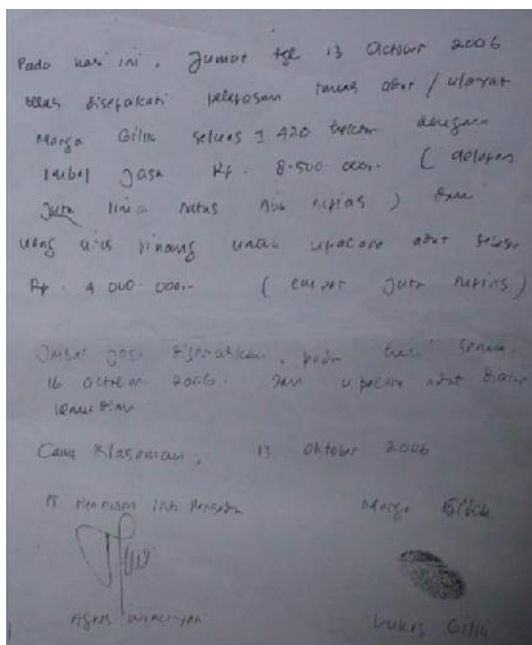 Pada hari ini, Jumat tgl 13 October 2006
telah disepakati pelepasan tanah adat / ulayat
Marga Gilik seluas ± 420 hektar dengan
imbal jasa Rp. 8.500.000.- ( delapan
juta lima ratus ribu rupias ) dan
uang siri pinang untuk upacara adat sebesar
Rp. 4.000.000.- ( empat juta rupias )
Imbal jasa diserahkan, pada hari senin
16 October 2006. Dan upacara adat diatur
kemudian
Klasaman, 13 Oktober 2006
PT Henrison Inti Persada
Marga Gilik
Agnes
Lukas Gilik